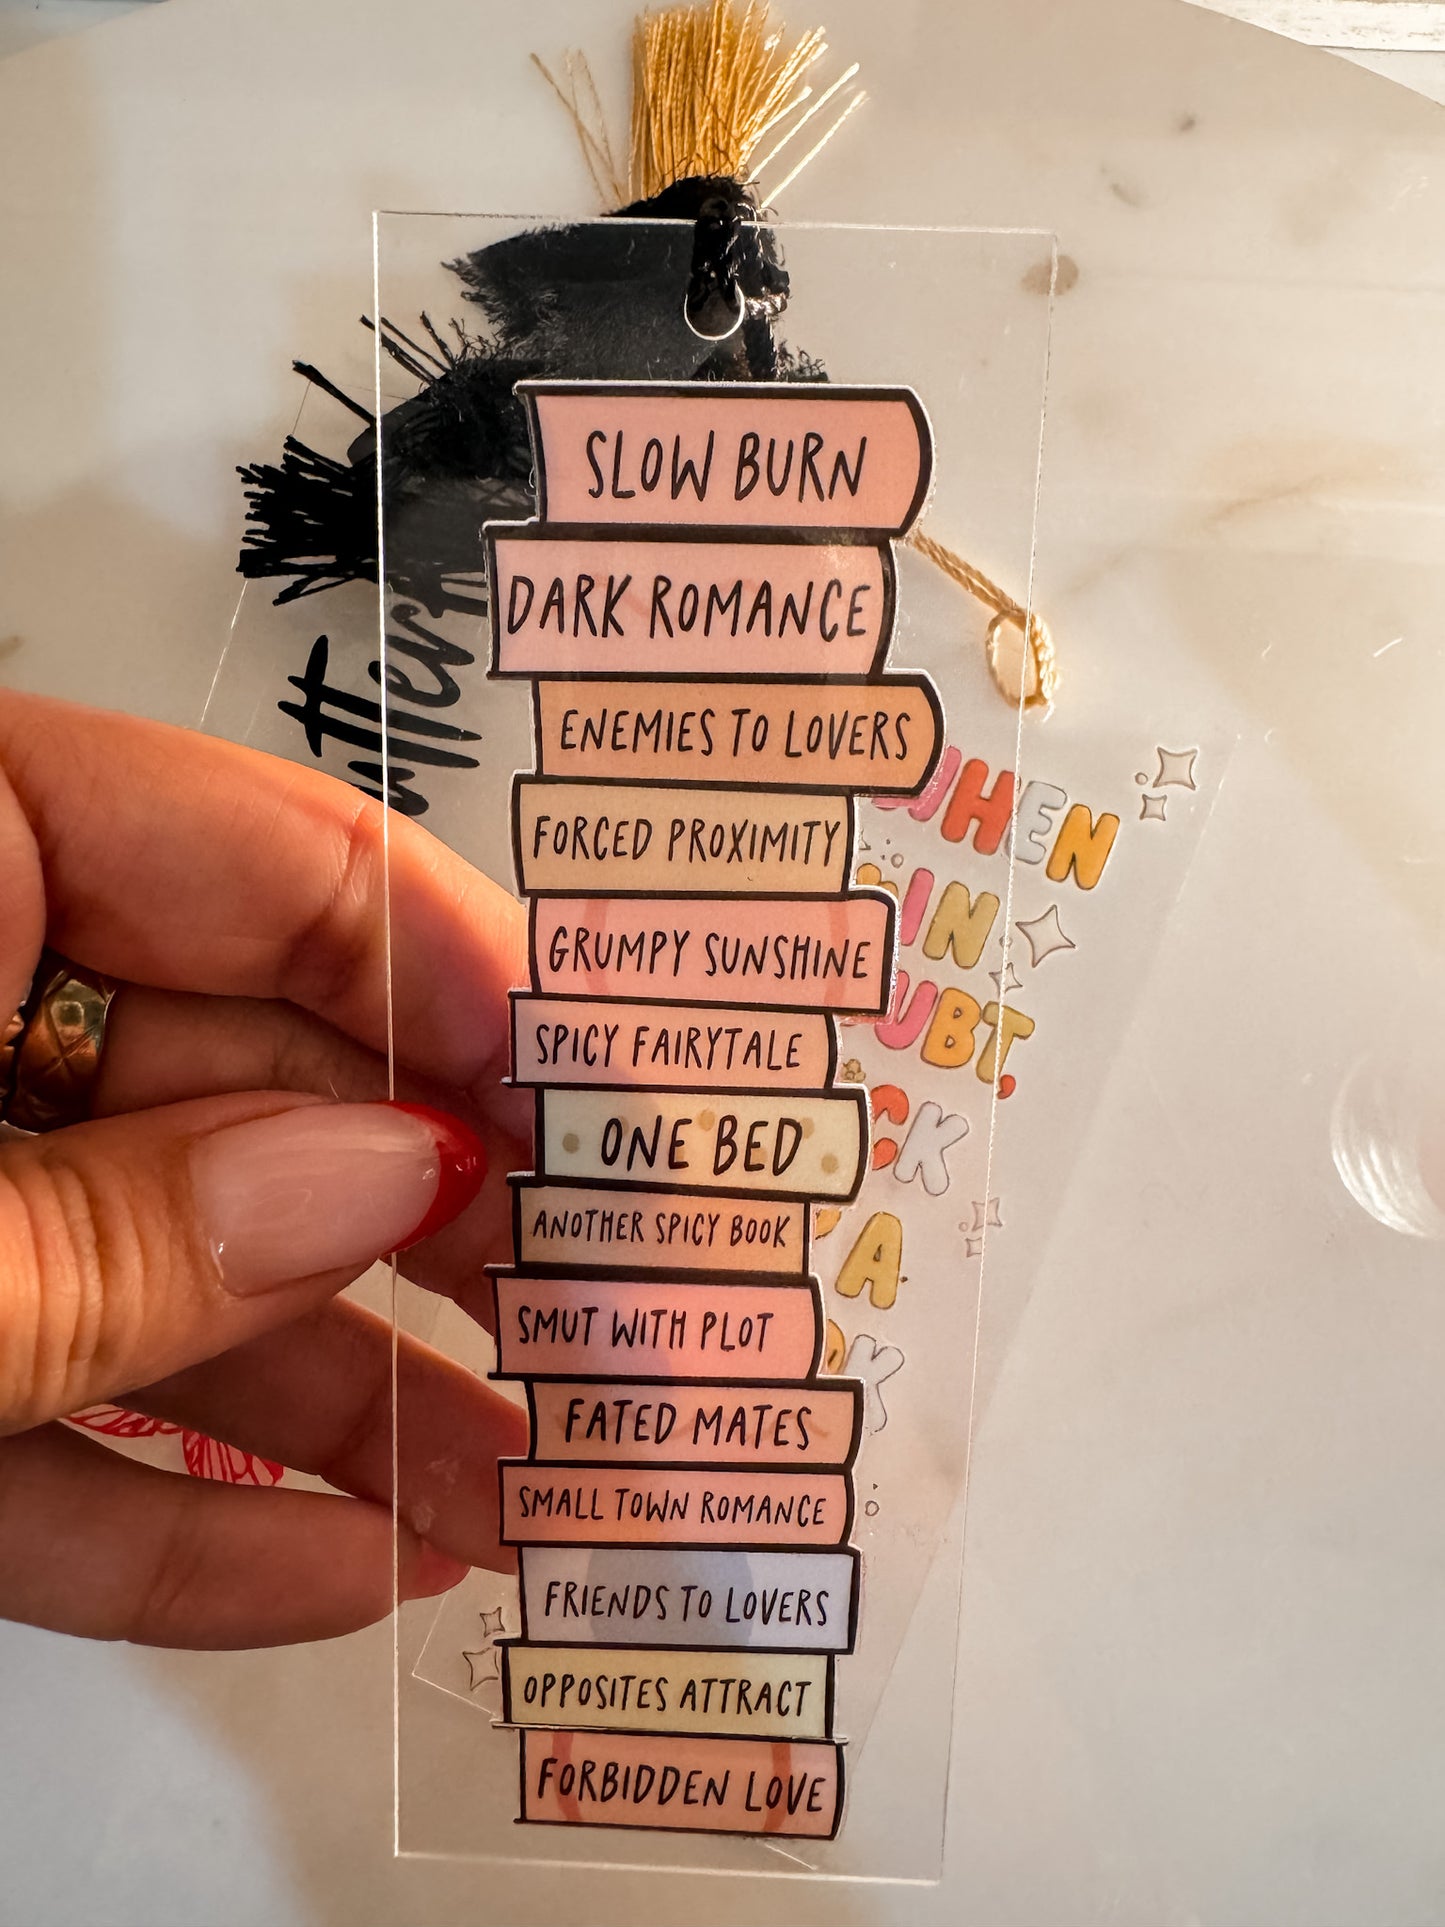 SLOW BURN
DARK ROMANCE
ENEMIES TO LOVERS
FORCED PROXIMITY
GRUMPY SUNSHINE
SPICY FAIRYTALE
ONE BED
ANOTHER SPICY BOOK
SMUT WITH PLOT
FATED MATES
SMALL TOWN ROMANCE
FRIENDS TO LOVERS
OPPOSITES ATTRACT
FORBIDDEN LOVE
WHEN
IN
A